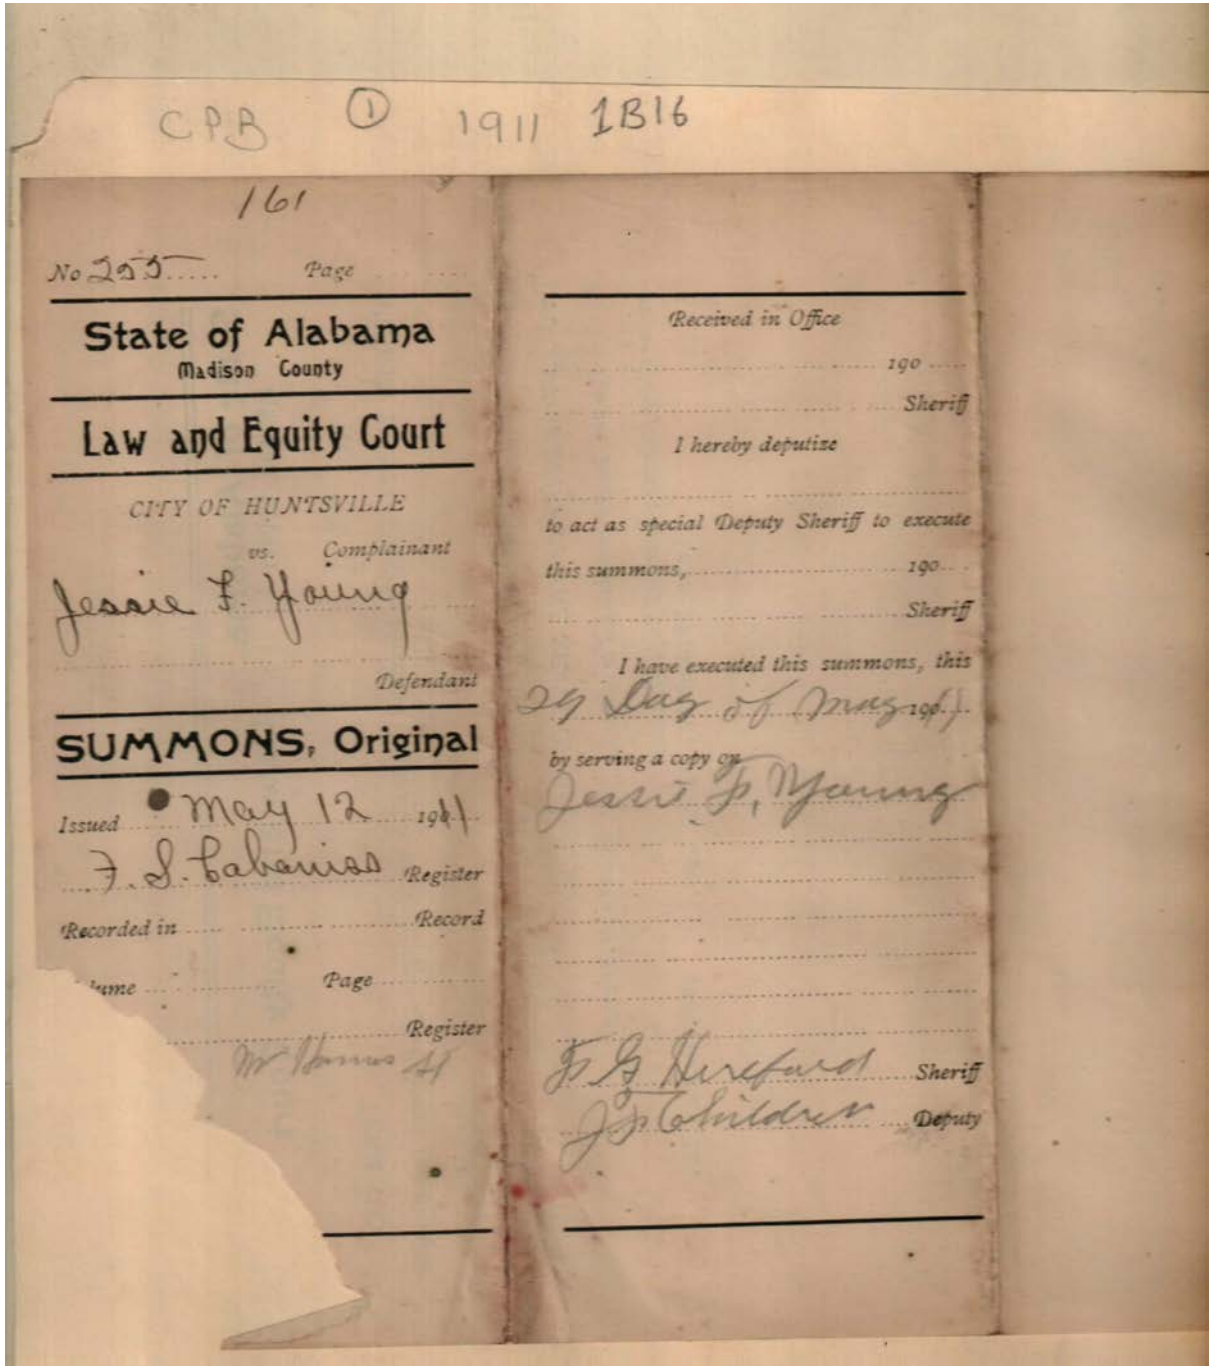 CPB ① 1911 1B16
161
No 255 Page
State of Alabama
Madison County
Law and Equity Court
CITY OF HUNTSVILLE
vs. Complainant
Jessie F. Young
Defendant
SUMMONS, Original
Issued May 12 1911
F. S. Cabaniss Register
Recorded in Record
ume Page
Register
Mr St
Received in Office
190
Sheriff
I hereby deputize
to act as special Deputy Sheriff to execute
this summons, 190
Sheriff
I have executed this summons, this
29 Day of May 1911
by serving a copy on
Jessie F. Young
F G Hereford Sheriff
J F Childres Deputy